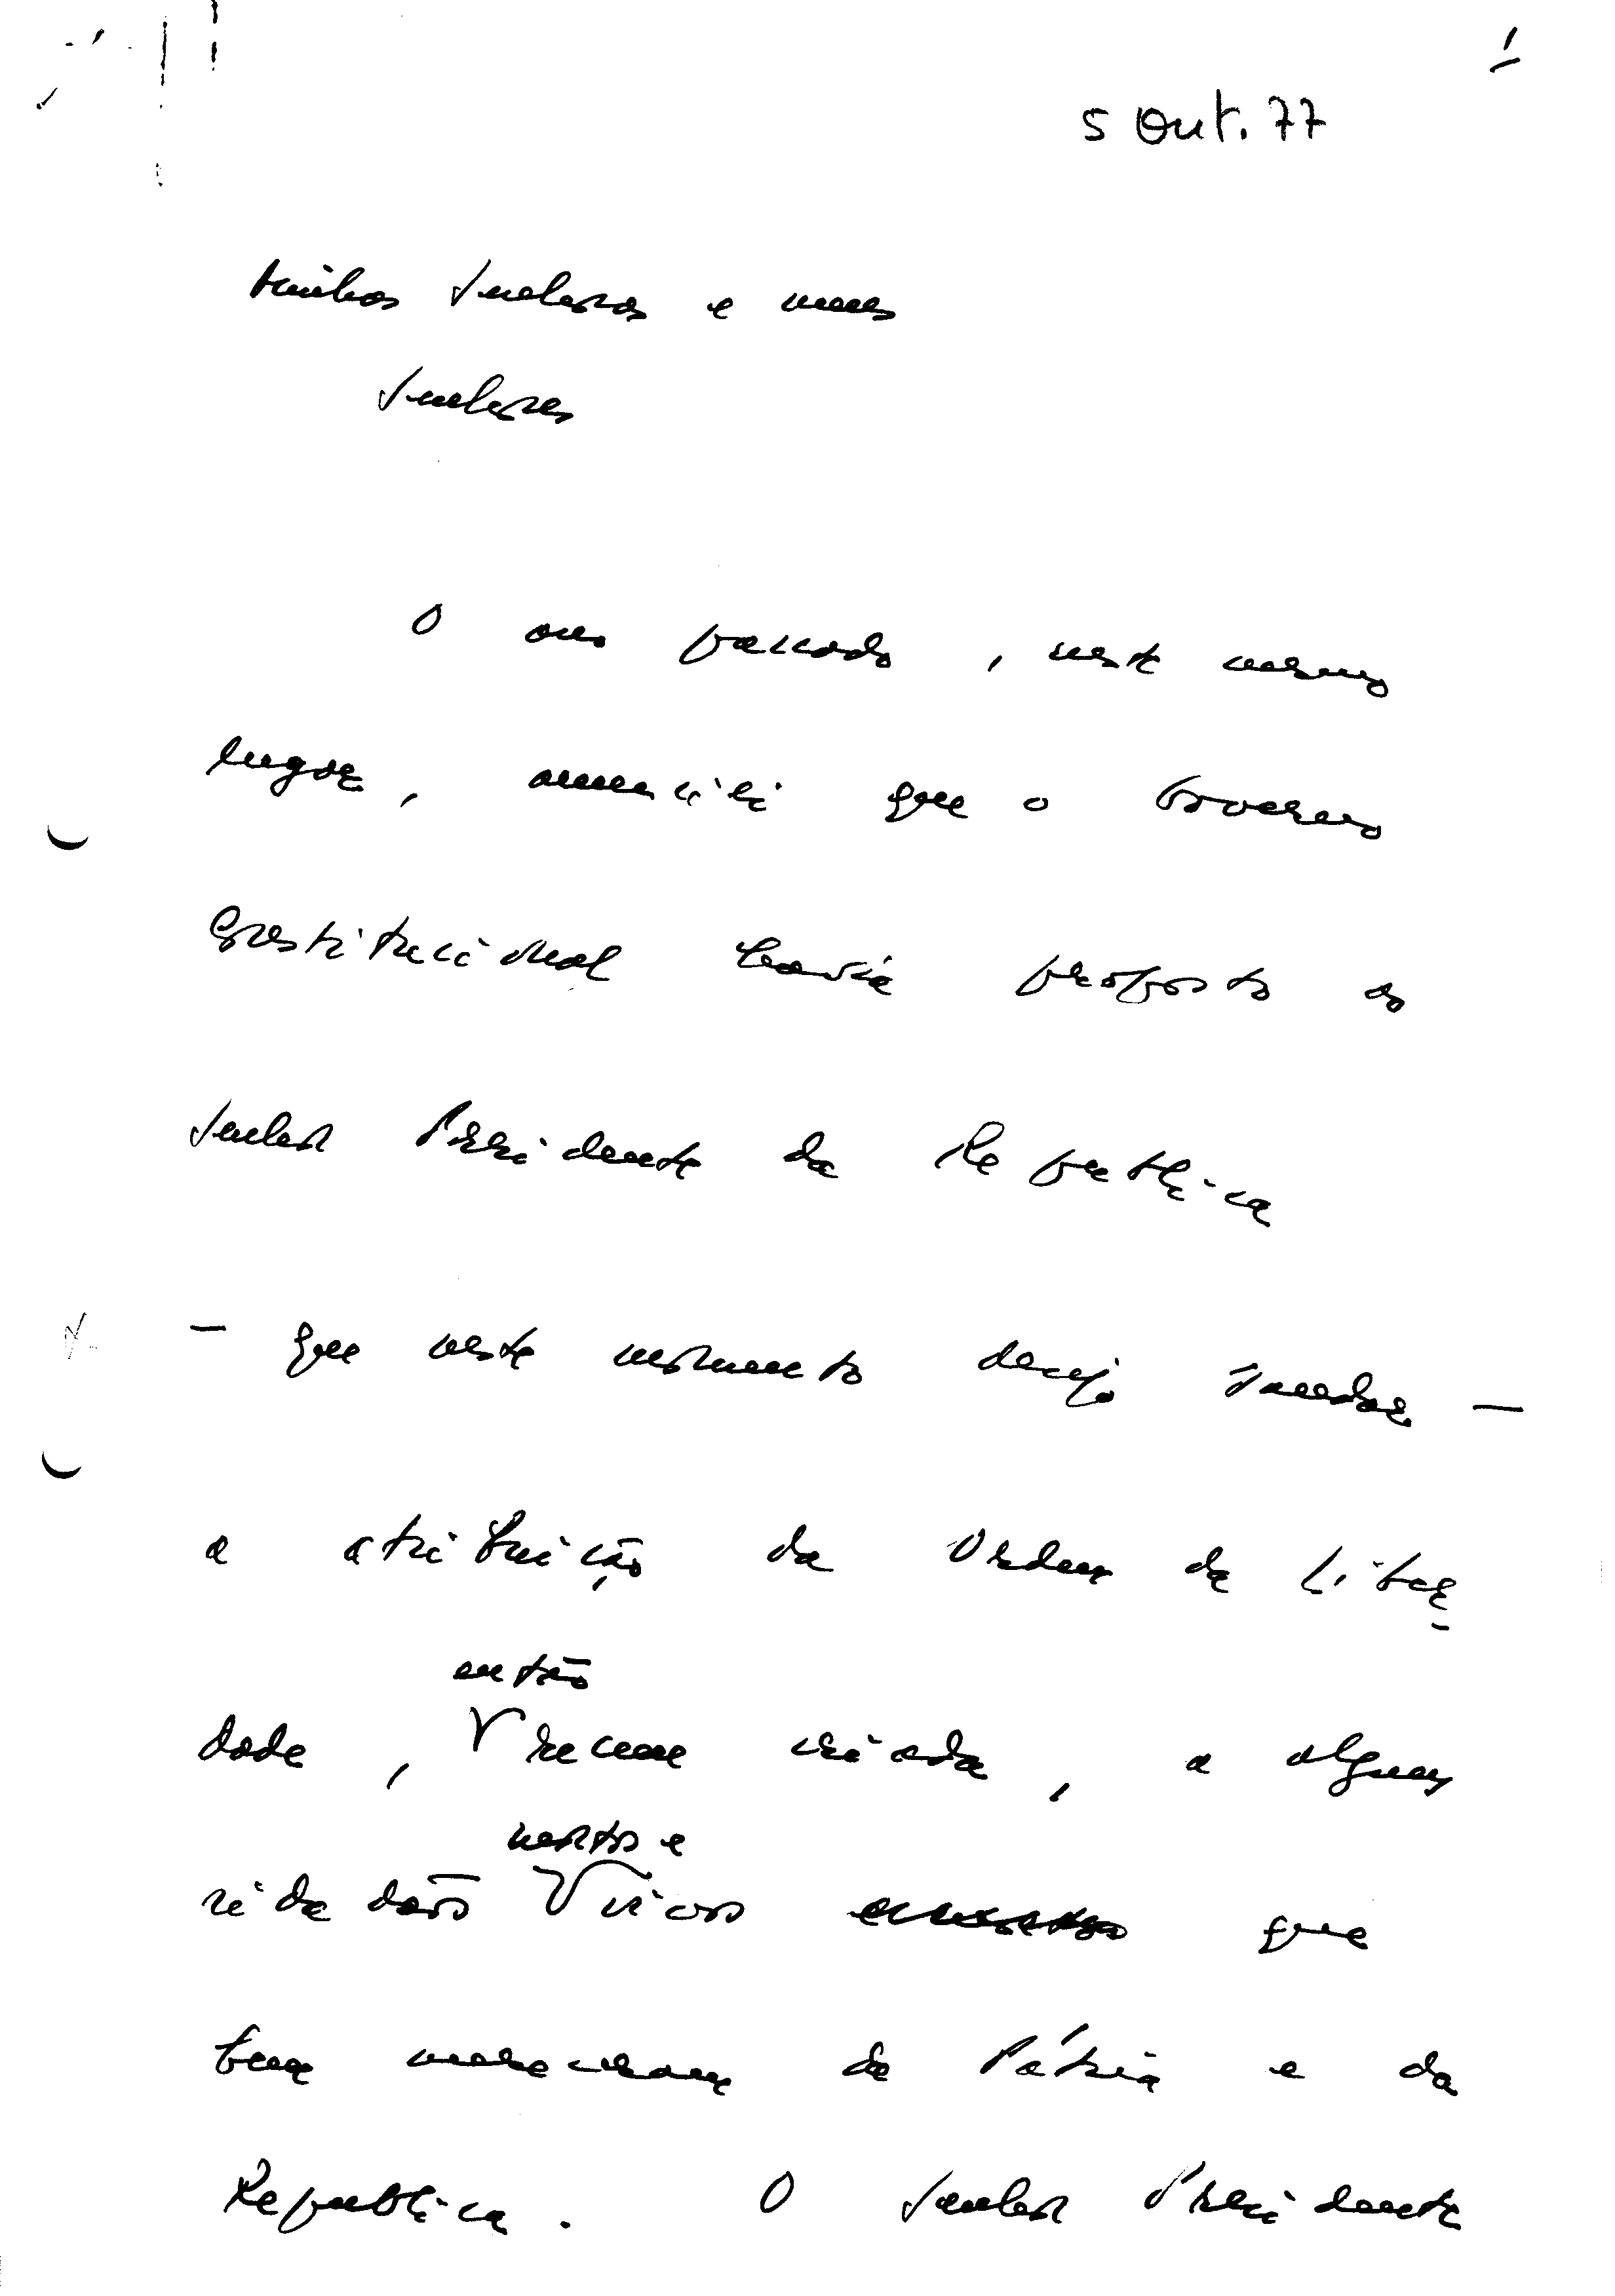 1
5 Out. 77
Minhas Senhoras e meus
Senhores
O ano passado, neste mesmo
lugar, anunciei que o Governo
Constitucional havia proposto ao
Senhor Presidente da Republica
- que neste momento desejo saudar -
a atribuição da Ordem da Liber-
então
dade, recem criada, a alguns
mortos e
cidadãos vivos que
bem mereceram da Pátria e da
Republica. O Senhor Presidente